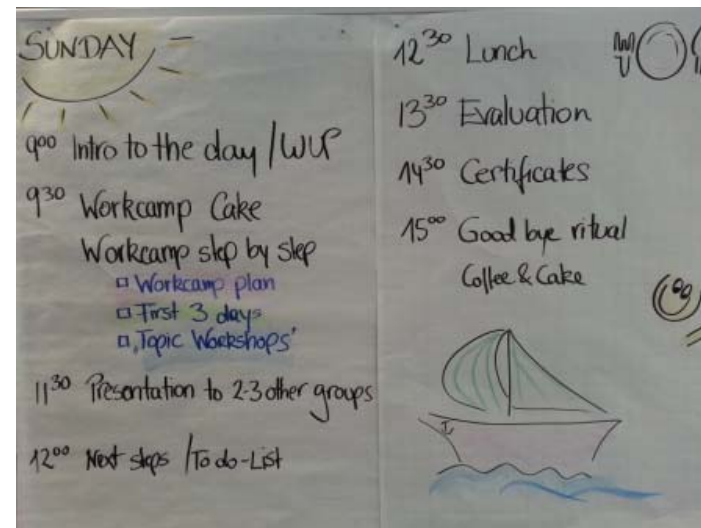 SUNDAY
9⁰⁰ Intro to the day / WUP
9³⁰ Workcamp Cake
Workcamp step by step
Workcamp plan
First 3 days
"Topic Workshops"
11³⁰ Presentation to 2-3 other groups
12⁰⁰ Next steps / To do-List
12³⁰ Lunch
13³⁰ Evaluation
14³⁰ Certificates
15⁰⁰ Good bye ritual
Coffee & Cake